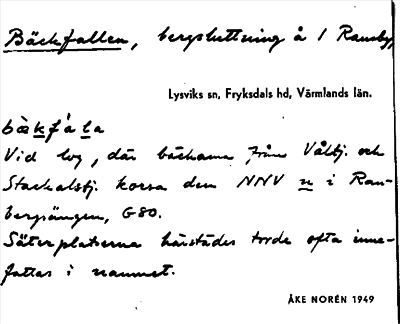 Bäckfallen, bergsluttning å 1 Ransby,
Lysviks sn, Fryksdals hd, Värmlands län.
bäkfála
Vid log, där bäckarna från Våltj. och
Stackalstj. korsa den NNV n i Ran-
bergsängen, G80.
Säterplatserna härstädes torde ofta inne-
fattas i namnet.
ÅKE NORÉN 1949